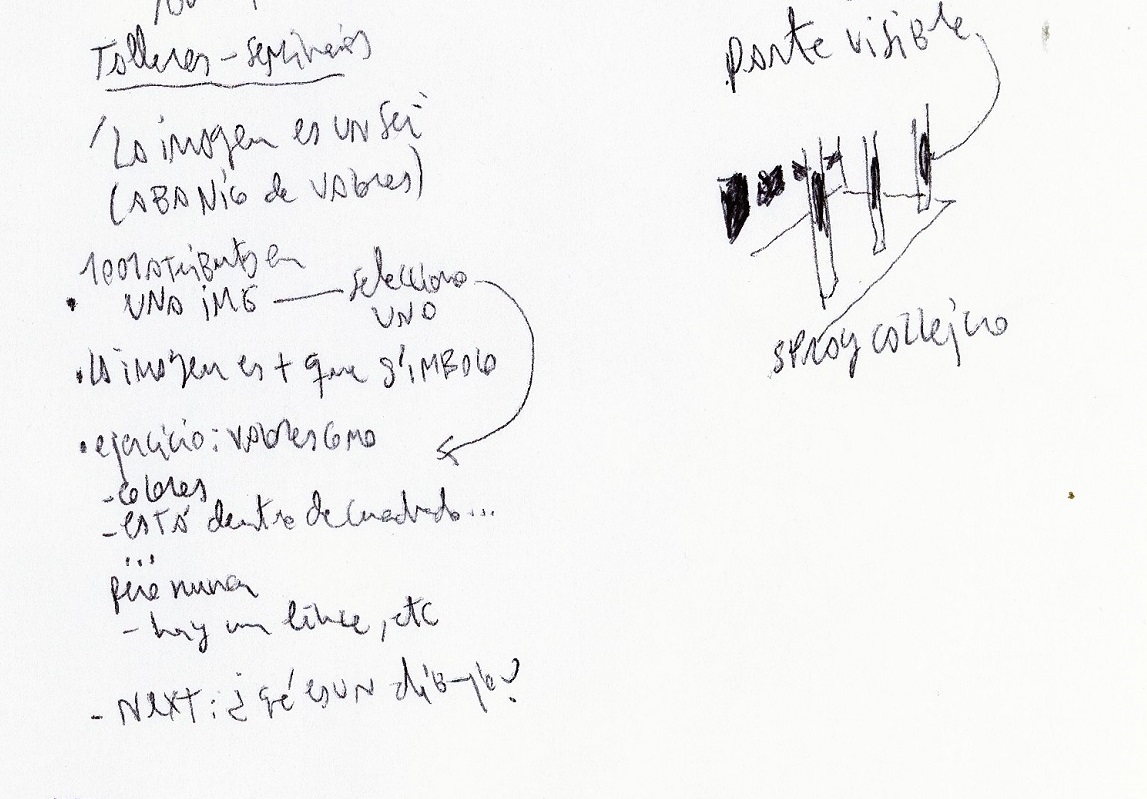 Talleres - seminarios
"La imagen es un set"
(ABANICO de VALORES)
100 ATRIBUTOS en
UNA IMG — selecciono
UNO
. la imagen es + que SÍMBOLO
. ejercicio: VALORES como
- colores
- ESTÁ dentro de cuadrado...
...
pero nunca
- hay un lince, etc
- NEXT: ¿qé es UN dibujo?
parte visible
spray callejero